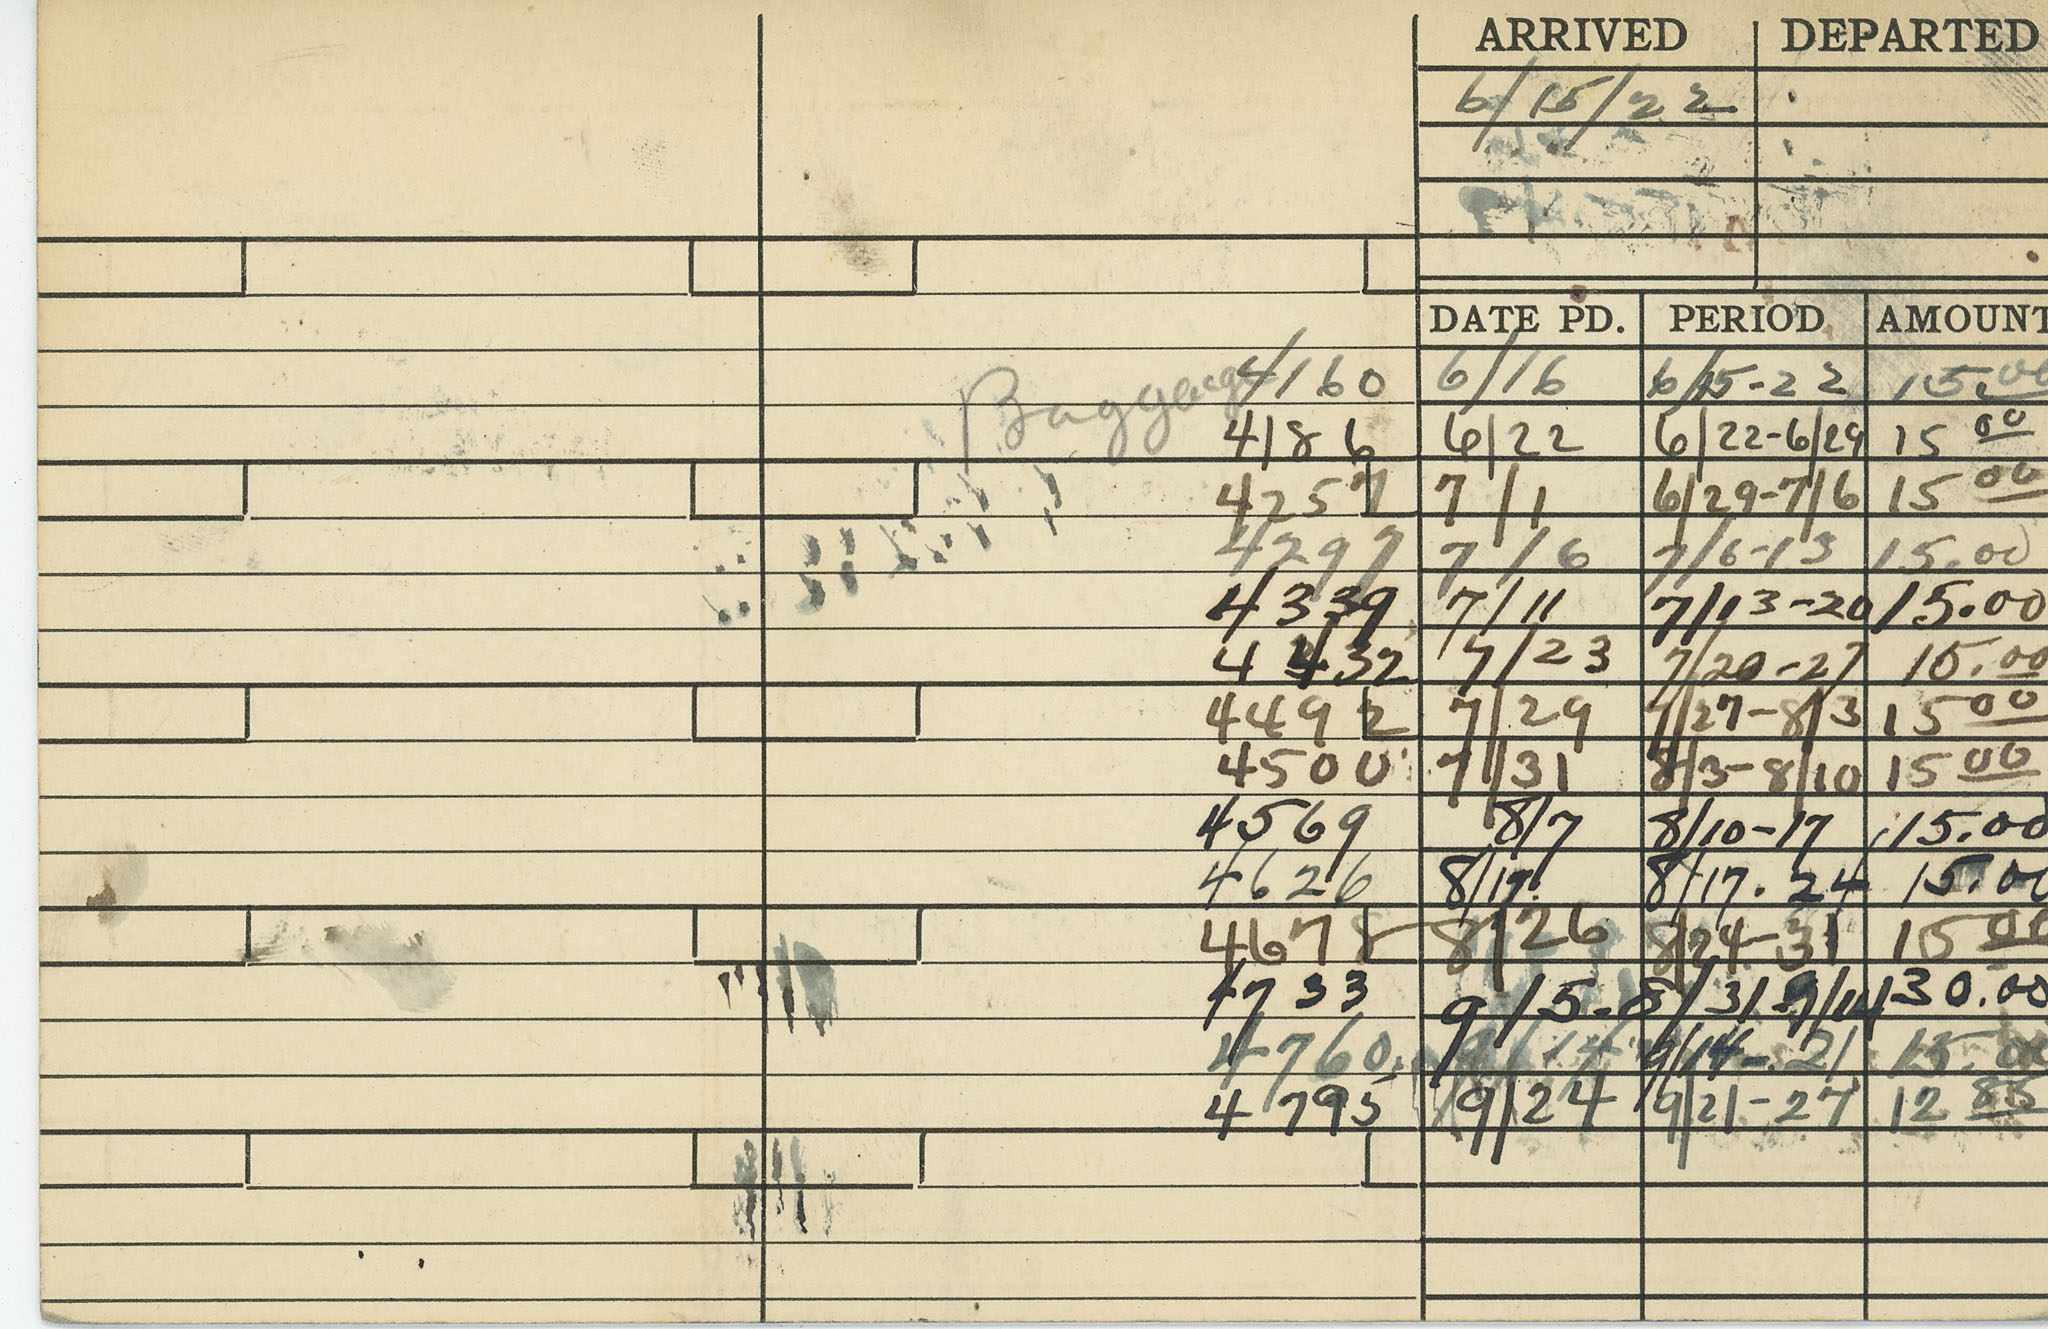 ARRIVED DEPARTED
6/15/22
DATE PD. PERIOD AMOUNT
Baggage
4160 6/16 6/15-22 15.00
4186 6/22 6/22-6/29 15 00
4257 7/1 6/29-7/6 15 00
4297 7/6 7/6-13 15.00
4339 7/11 7/13-20 15.00
4432 7/23 7/20-27 15.00
4492 7/29 7/27-8/3 15 00
4500 7/31 8/3-8/10 15 00
4569 8/7 8/10-17 15.00
4626 8/17. 8/17.24 15.00
4678 8/26 8/24-31 15 00
4733 9/5-8/31-9/14 30.00
4760. 9/14 9/14-21 15.00
4795 9/24 9/21-27 12 85